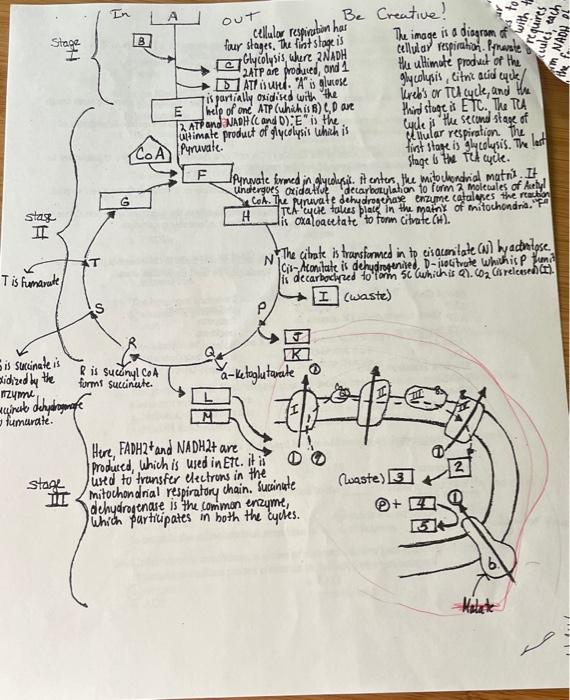 In
A
OUT
Be Creative!
Stage
I
B
C
D
E
cellular respiration has
four stages. The first stage is
Glycolysis, where 2NADH
2ATP are produced, and 1
ATP is used. "A" is glucose
is partially oxidised with the
help of one ATP (which is B) C, D are
2 ATP and NADH (C and D): "E" is the
ultimate product of glycolysis which is
Pyruvate.
The image is a diagram of
cellular respiration. Pyruvate
the ultimate product of the
glycolysis, citric acid cycle/
Kreb's or TCA cycle, and the
third stage is ETC. The TCA
cycle is the second stage of
cellular respiration. The
first stage is glycolysis. The last
stage is the TCA cycle.
Stage
II
CoA
F
G
H
Pyruvate formed in glycolysis. it enters the mitochondrial matrix. It
undergoes oxidative decarboxylation to form 2 molecules of Acetyl
CoA. The pyruvate dehydrogenase enzyme catalyses the reaction
TCA cycle takes place in the matrix of mitochondria. "F"
is oxaloacetate to form Citrate (H).
N
The citrate is transformed in to cisaconitate (N) by
Cis-Aconitate is dehydrogenised, D-isocitrate which is P
is decarboxylized to form SC (which is Q). CO2 is released (I).
I (waste)
T
T is fumarate
S
P
J
K
R
Q
α-Ketoglutarate
is succinate is
oxidized by the
enzyme
succinate dehydrogenase
fumarate.
R is succinyl CoA
forms succinate.
L
M
I
II
III
IV
1
2
(waste) 3
P + 4
5
6
Malate
Stage
III
Here, FADH2+ and NADH2+ are
Produced, which is used in ETC. it is
used to transfer electrons in the
mitochondrial respiratory chain. Succinate
dehydrogenase is the common enzyme,
which participates in both the cycles.